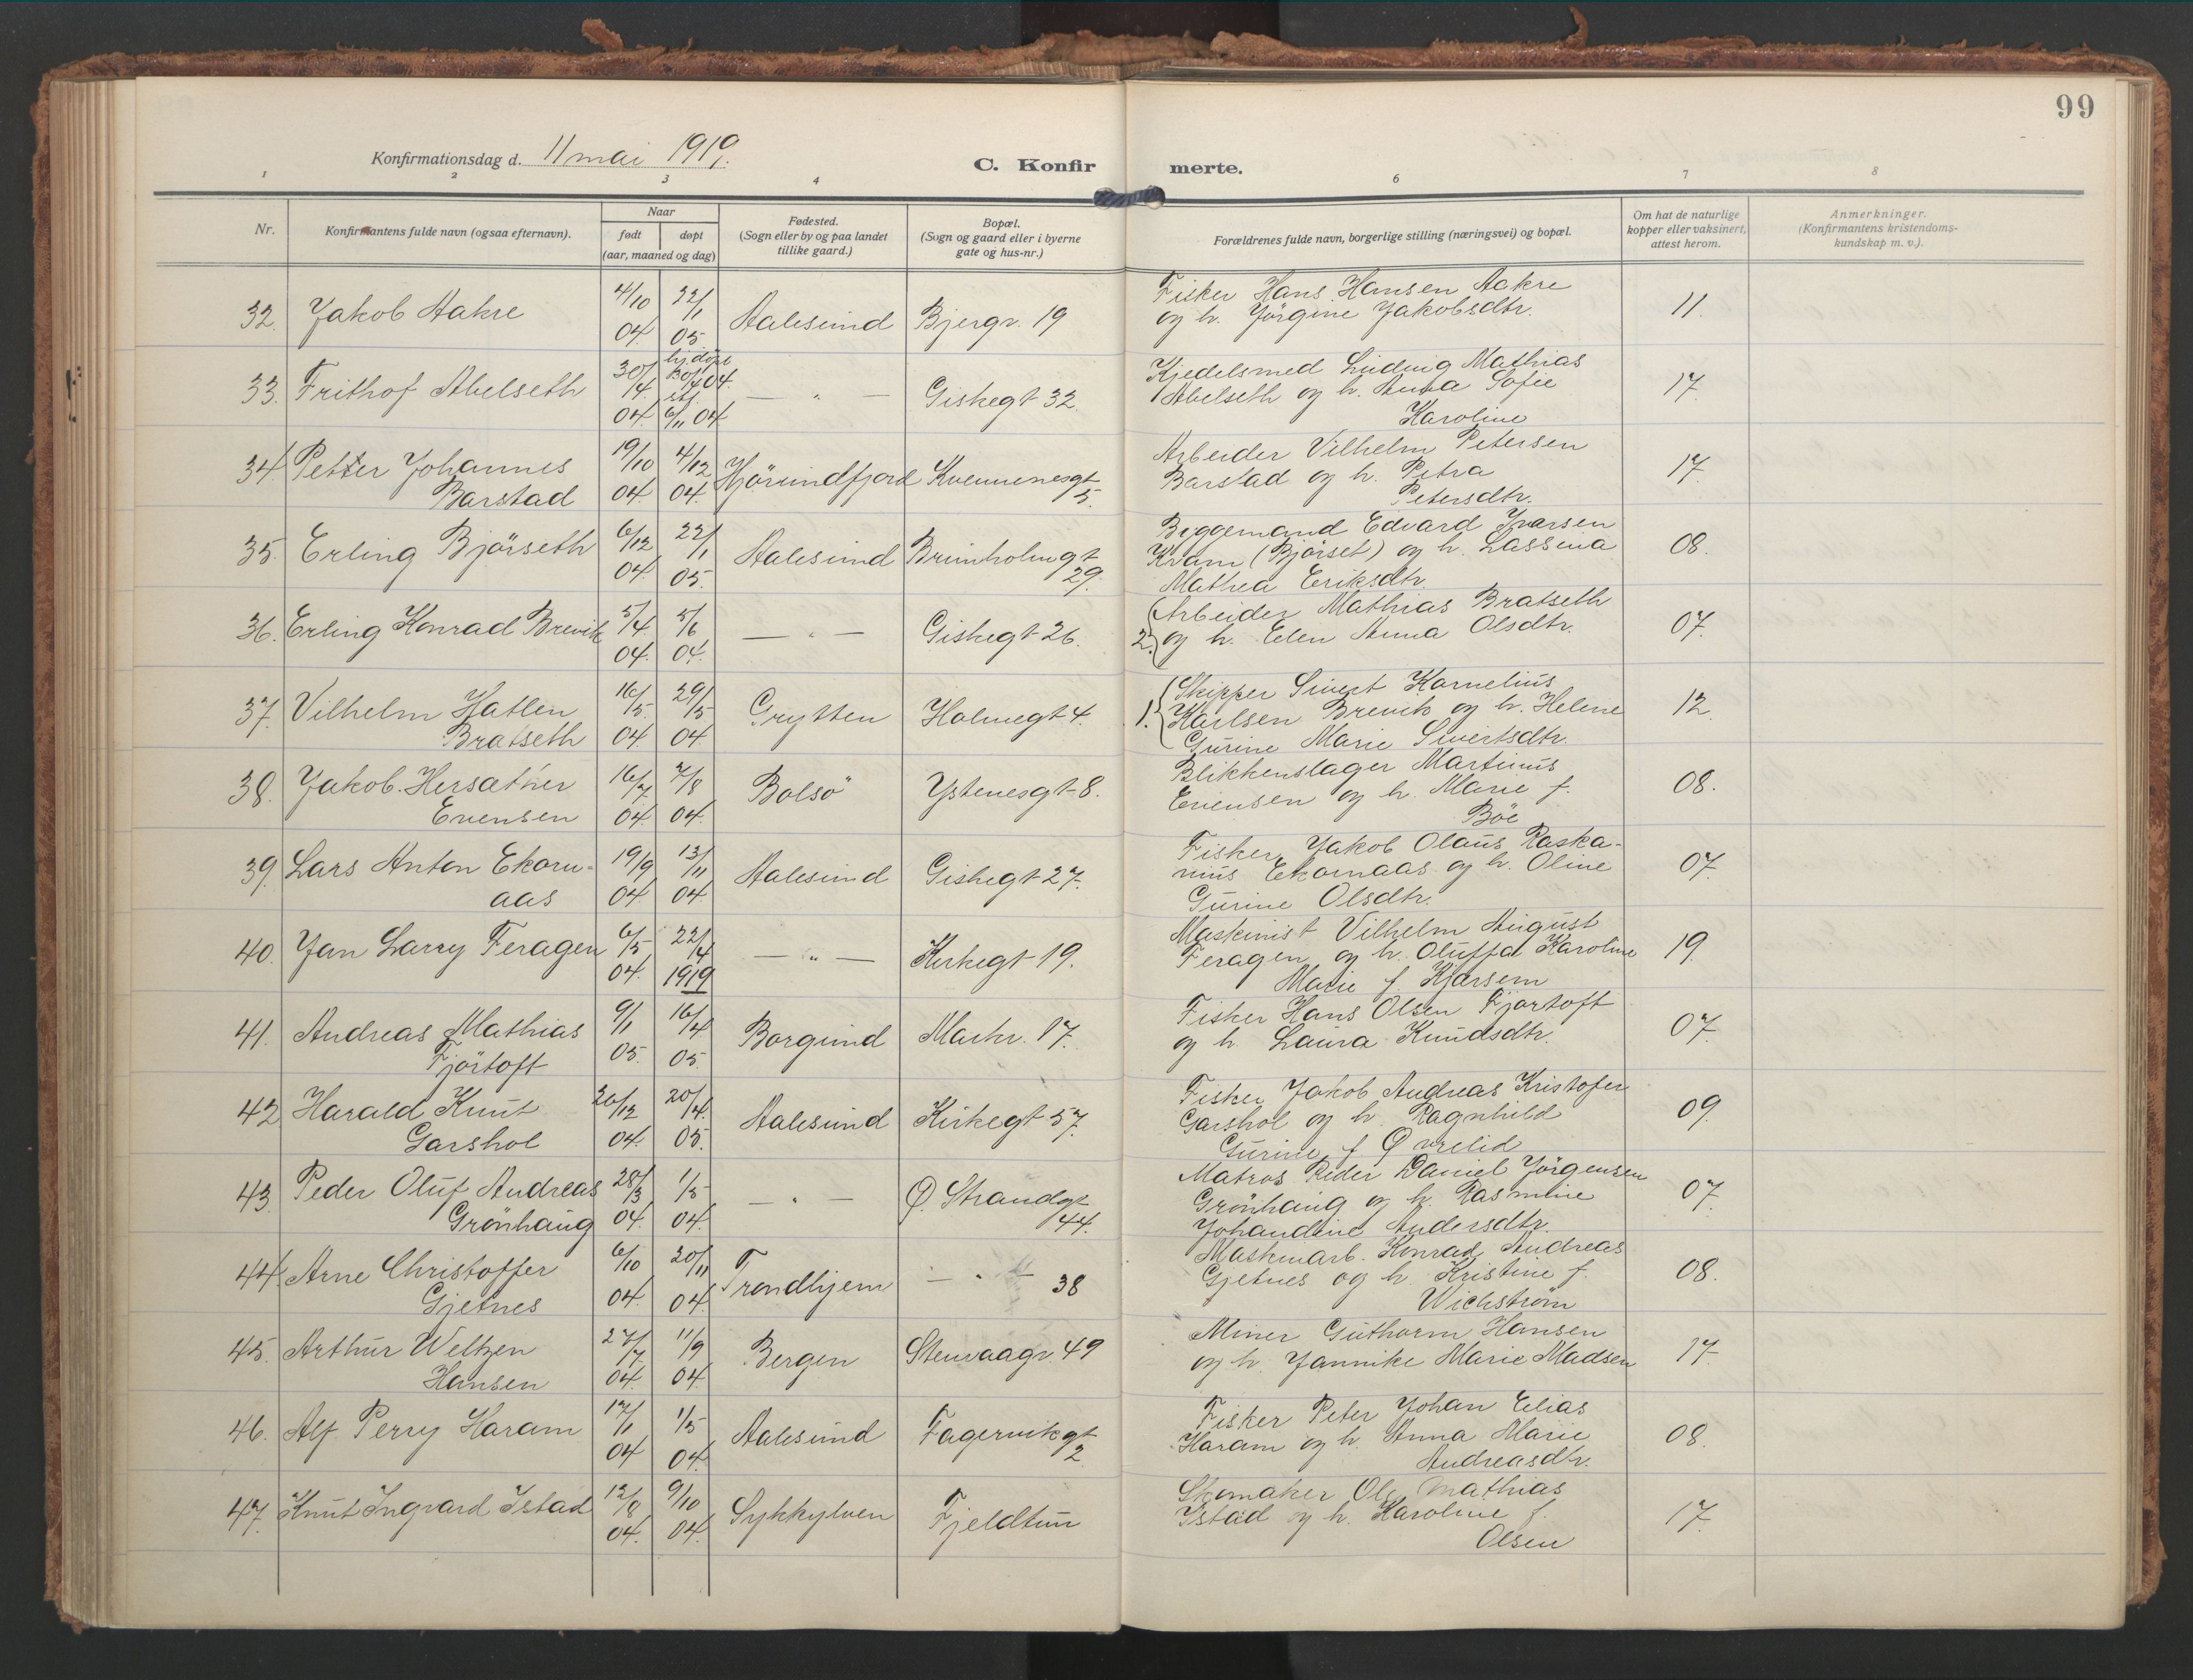 99
Konfirmationsdag d. 11 mai 1919.
C. Konfir merte.
1 2 3 4 6 7 8
Nr.
Konfirmantens fulde navn (ogsaa efternavn).
Naar
født døpt
(aar, maaned og dag)
Fødested.
(Sogn eller by og paa landet
tillike gaard.)
Bopæl.
(Sogn og gaard eller i byerne
gate og hus-nr.)
Forældrenes fulde navn, borgerlige stilling (næringsvei) og bopæl.
Om hat de naturlige
kopper eller vaksinert,
attest herom.
Anmerkninger.
(Konfirmantens kristendoms-
kundskap m. v.).
32. Jakob Aakre 4/10 04. 22/1 05. Aalesund Bjergv. 19
Fisker Hans Hansen Aakre
og h. Jörgine Jakobsdtr. 11.
33. Frithof Abelseth 30/4 04 hj.döpt 30/4 04. st. 6/11 04 — " — Giskegt 32.
Kjedelsmed Ludvig Mathias
Abelseth og h. Anna Sofie
Karoline 17.
34. Petter Johannes
Barstad 19/10 04. 4/12 04. Hjörundfjord Kvennenesgt
5.
Arbeider Vilhelm Petersen
Barstad og h. Petra
Petersdtr. 17.
35. Erling Bjørseth 6/12 04. 22/1 05. Aalesund Brunholmgt
29.
Byggemand Edvard Ivarsen
Kvam (Bjørset) og h. Lassina
Mathea Eriksdtr. 08.
36. Erling Konrad Brevik 5/4 04. 5/6 04. — " — Giskegt 26.
2. Arbeider Mathias Bratseth
og h. Elen Anna Olsdtr. 07.
37. Vilhelm Hatlen
Bratseth 16/5 04. 29/5 04. Grytten Holmegt 4.
1. Skipper Sivert Kornelius
Karlsen Brevik og h. Helene
Gurine Marie Sivertsdtr. 12.
38. Jakob Hersæther
Evensen 16/7 04. 7/8 04. Bolsö Ystenesgt 8.
Blikkenslager Martinus
Evensen og h. Marie f.
Böe 08.
39. Lars Anton Ekorn-
aas 19/9 04. 13/11 04. Aalesund Giskegt 27.
Fisker Jakob Olaus Raska-
nus Ekornaas og h. Oline
Gurine Olsdtr. 07.
40. Jan Larry Feragen 6/5 04. 22/4 1919 — " — Kirkegt 19.
Maskinist Vilhelm August
Feragen og h. Oluffa Karoline
Marie f. Kjærsem 19.
41. Andreas Mathias
Fjörtoft 9/1 05. 16/4 05. Borgund Markv. 17.
Fisker Hans Olsen Fjørtoft
og h. Laura Knudsdtr. 07.
42. Harald Knut
Garshol 26/12 04. 20/4 05. Aalesund Kirkegt 57.
Fisker Jakob Andreas Kristofer
Garshol og h. Ragnhild
Gurine f. Øvrelid 09.
43. Peder Oluf Andreas
Grönhaug 28/3 04. 1/5 04. — " — Ø. Strandgt
44.
Matros Peder Daniel Jörgensen
Grönhaug og h. Rasmine
Johandine Andersdtr. 07.
44. Arne Christoffer
Gjetnes 6/10 04. 20/11 04. Trondhjem — " — 38
Maskinarb. Konrad Andreas
Gjetnes og h. Kristine f.
Wichström 08.
45. Arthur Weltzen
Hansen 27/7 04. 11/9 04. Bergen Stenvaagv. 49
Miner Guthorm Hansen
og h. Jannike Marie Madsen 17.
46. Alf Perry Haram 17/1 04 1/5 04. Aalesund Fagervikgt
2
Fisker Peter Johan Elias
Haram og h. Anna Marie
Andreasdtr. 08.
47. Knut Ingvard Istad 12/8 04. 9/10 04. Sykkylven Fjeldtun
Skomaker Ole Mathias
Istad og h. Karoline f.
Olsen 17.